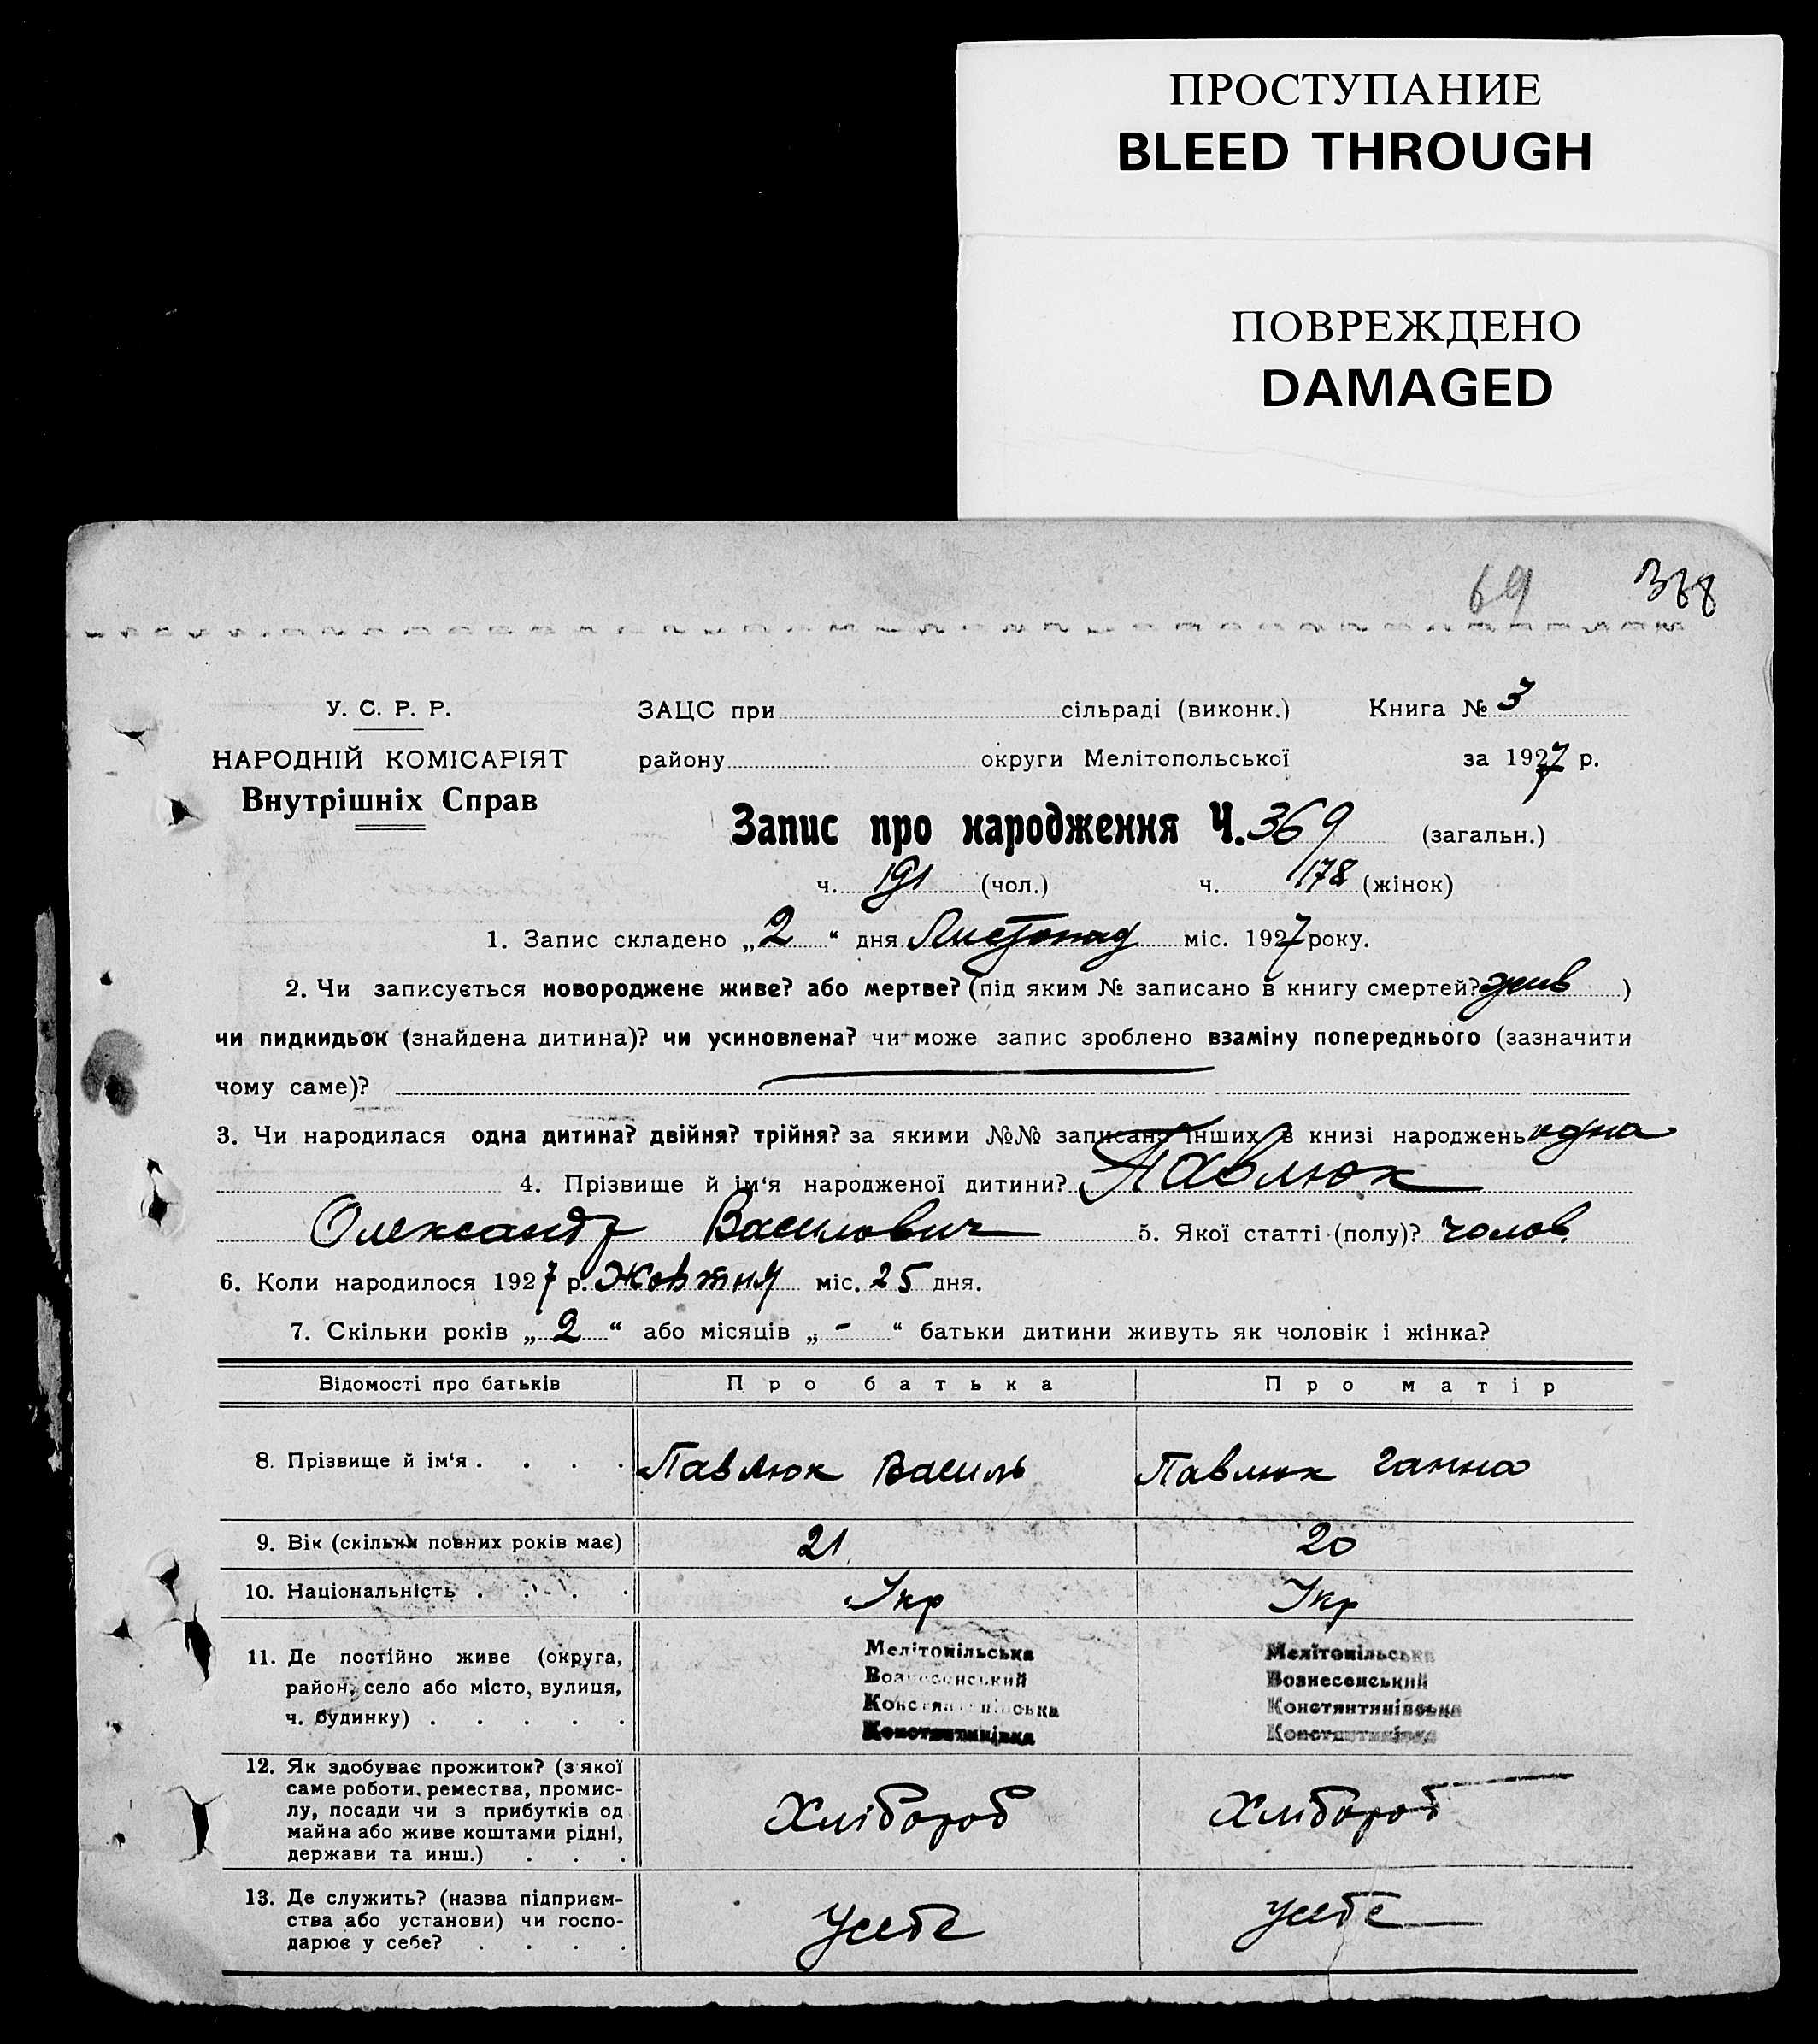 ПРОСТУПАНИЕ
BLEED THROUGH
ПОВРЕЖДЕНО
DAMAGED
69 368
У. С. Р. Р. ЗАЦС при сільраді (виконк.) Книга № 3
НАРОДНІЙ КОМІСАРІЯТ району округи Мелітопольської за 1927 р.
Внутрішніх Справ
Запис про народження Ч. 369 (загальн.)
ч. 191 (чол.) ч. 178 (жінок)
1. Запис складено „2“ дня Листопад міс. 1927 року.
2. Чи записується новороджене живе? або мертве? (під яким № записано в книгу смертей? жив )
чи пидкидьок (знайдена дитина)? чи усиновлена? чи може запис зроблено взаміну попереднього (зазначити
чому саме)?
3. Чи народилася одна дитина? двійня? трійня? за якими №№ записано інших в книзі народжень одна
4. Прізвище й ім‘я народженої дитини? Павлюк
Олександр Василович 5. Якої статті (полу)? чолов.
6. Коли народилося 1927 р. Жовтня міс. 25 дня.
7. Скільки років „2“ або місяців „-“ батьки дитини живуть як чоловік і жінка?
Відомості про батьків Про батька Про матір
8. Прізвище й ім‘я . . . . Павлюк Василь Павлюк Ганна
9. Вік (скільки повних років має) 21 20
10. Національність . . . . Укр Укр
11. Де постійно живе (округа,
район, село або місто, вулиця,
ч. будинку) . . . . .
Мелітопільська
Вознесенський
Константинівська
Константинівка
Мелітопільська
Вознесенський
Константинівська
Константинівка
12. Як здобуває прожиток? (з якої
саме роботи, ремества, промис-
лу, посади чи з прибутків од
майна або живе коштами рідні,
держави та инш.) . . .
Хлібороб Хлібороб
13. Де служить? (назва підприєм-
ства або установи) чи госпо-
дарює у себе? . . . .
Усебе усебе